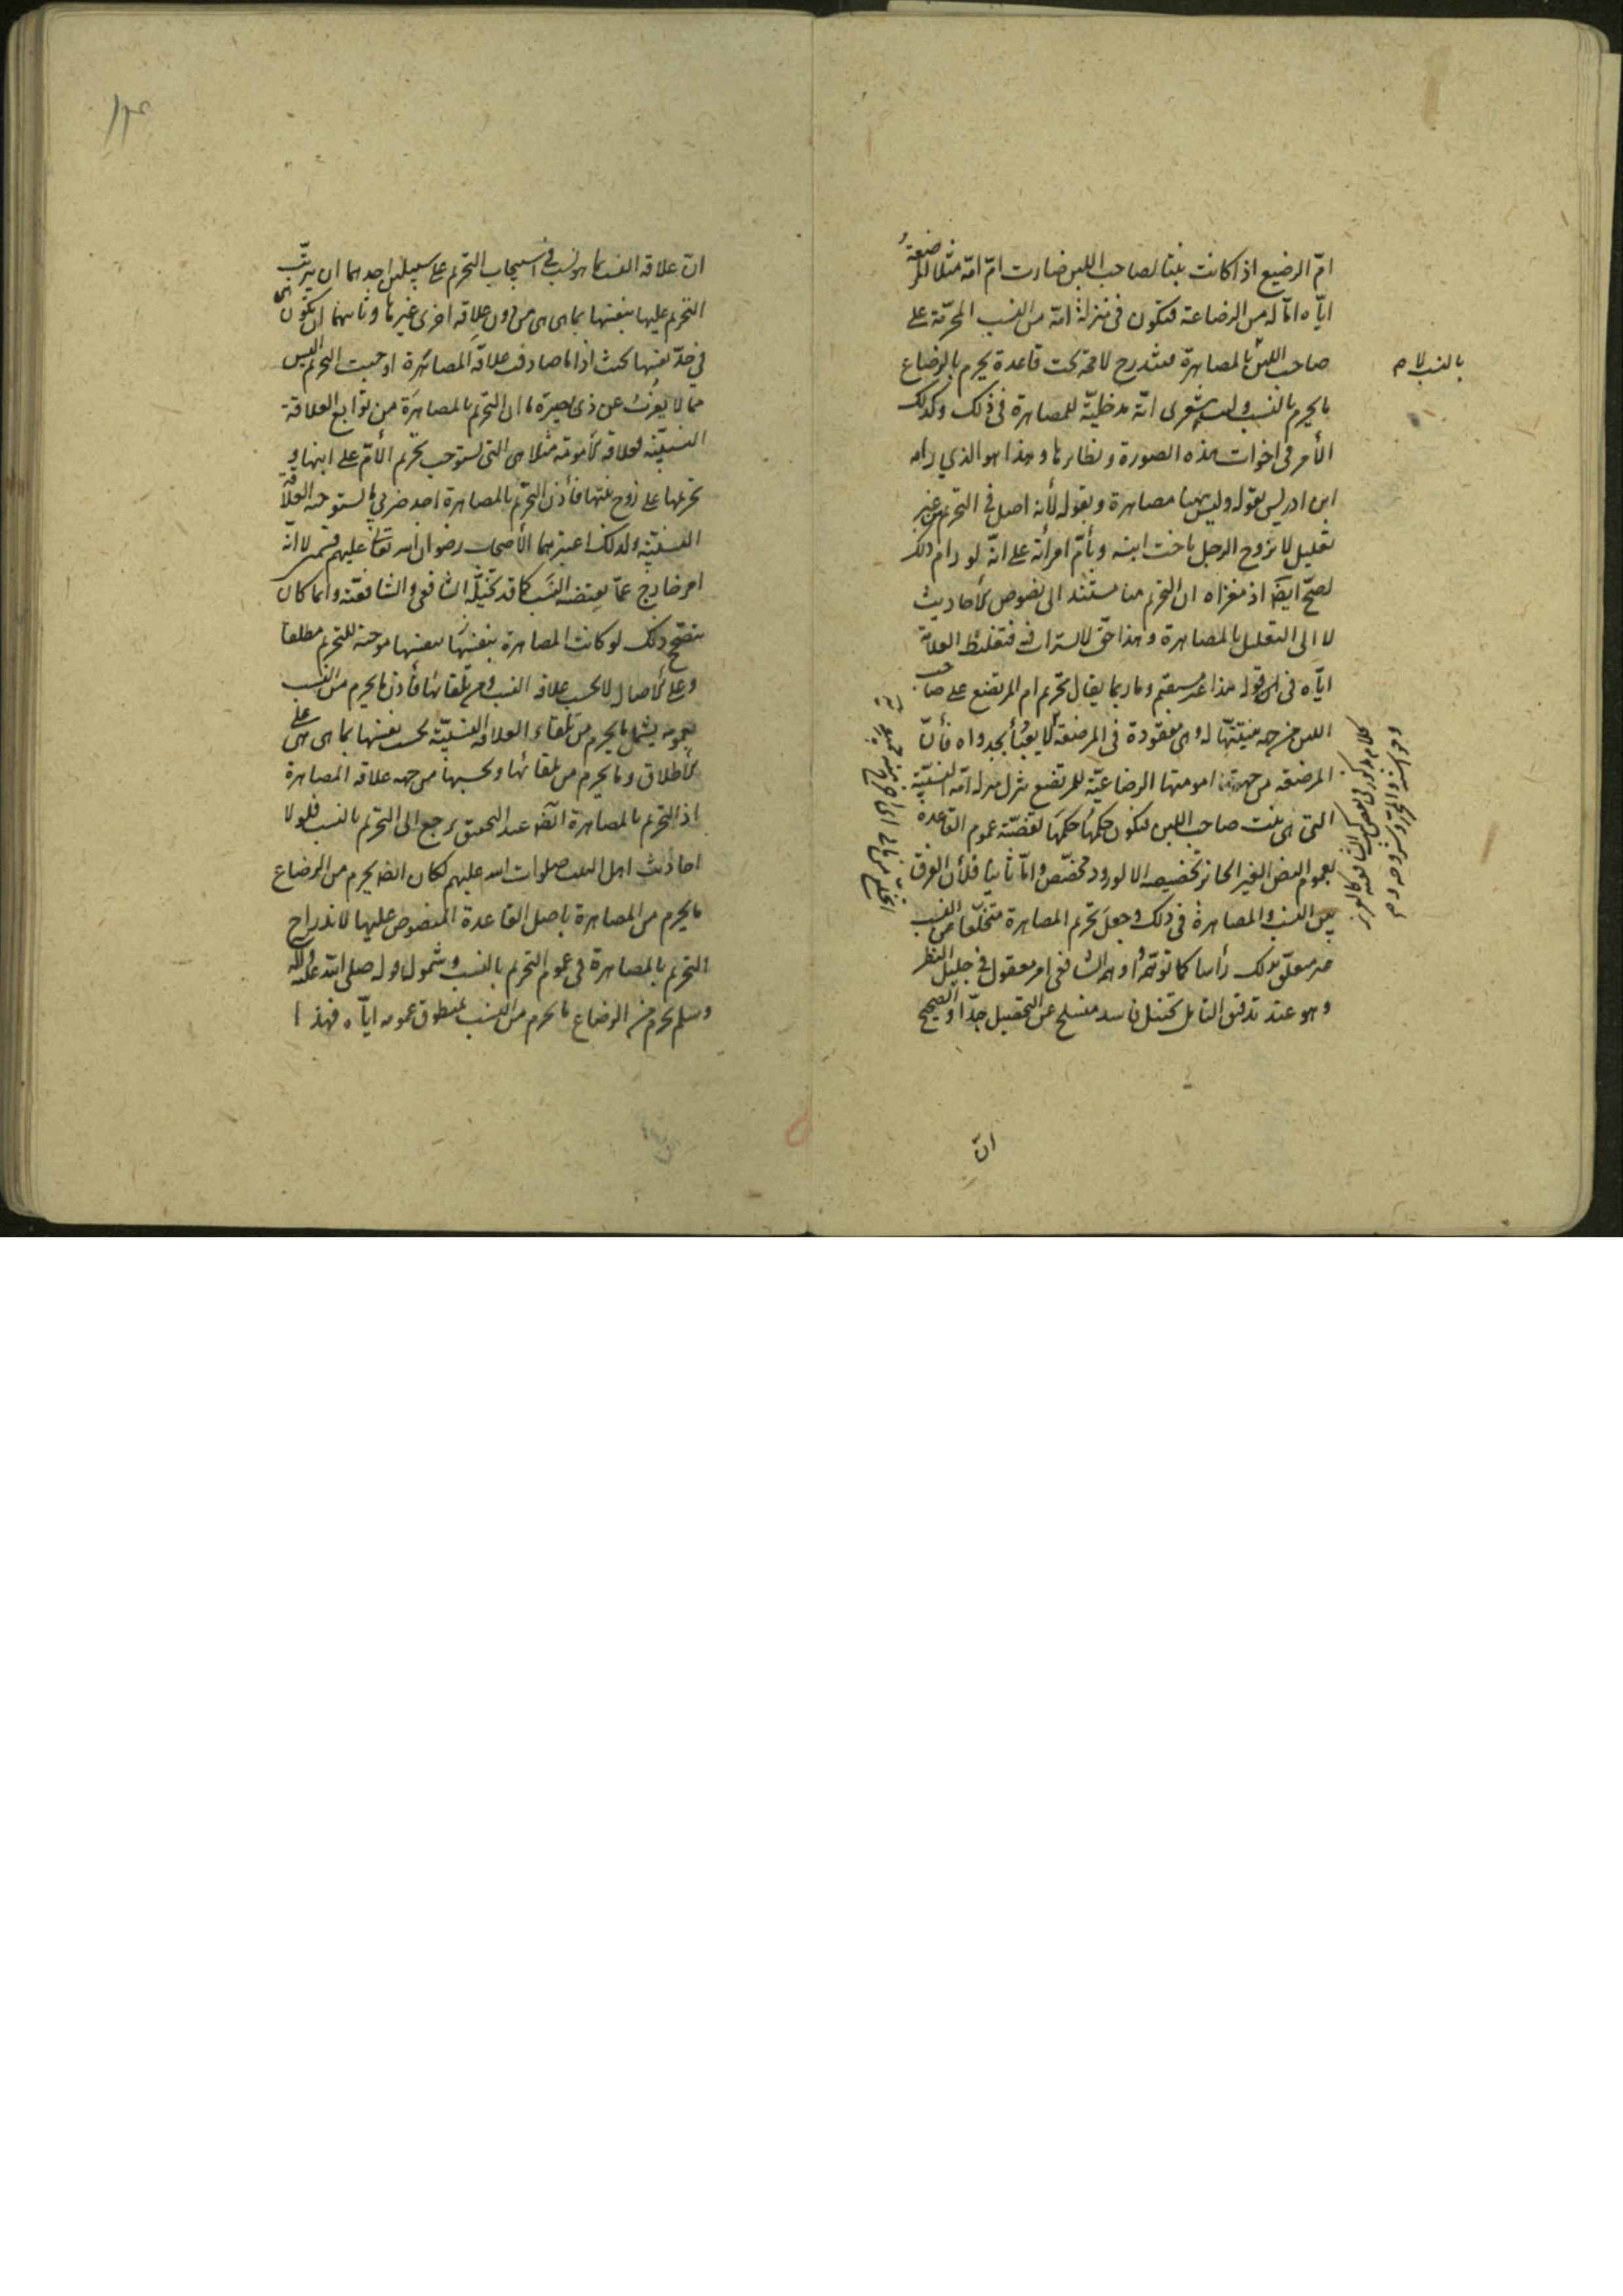 امّ الرضيع اذا كانت بنتا لصاحب اللبن صارت امّ امّه مثلا المرضعة
ايّاه امّا له من الرضاعة فتكون فى منزلة امّه من النسب المحرّمة على
صاحب اللبن بالمصاهرة فتندرج لا محة تحت قاعدة يحرم بالرضاع
بالنسب لا م
ما يحرم بالنسب وليت شعرى انّه مدخليّة للمصاهرة فى ذلك وكذلك
الأمر فى اخوات هذه الصورة ونظايرها وهذا هو الذي رامه
ابن ادريس بقوله وليس هنا مصاهرة وبقوله لأنه اصل فى التحريم من غير
تعليل لا يتزوج الرجل باخت ابنه وبأمّ امرأته على انّه لو رام ذلك
لصحّ ايضا اذ مغزاه ان التحريم هنا مستند الى نصوص الأحاديث
لا الى التعليل بالمصاهرة وهذا حقّ لا يستراب فيه فتغليط العلامة
ايّاه فى قوله هذا غير مستقيم وما ربما يقال تحريم ام المرتضع على صاحب
اللبن من جهة بنتيّتها له وهى مفقودة فى المرضعة لا يعبأ بجدواه فأنّ
المرضعة من جهة امومتها الرضاعيّة للمرتضع تنزل منزلة امّه النسبيّة
التى هى بنت صاحب اللبن فيكون حكمها حكمها لقضيّة عموم القاعدة
لعموم النص الغير الجائز تخصيصه الا لورود مخصّص وامّا ثانيا فلأن الفرق
بين النسب والمصاهرة فى ذلك وجعل تحريم المصاهرة متخلّفا عن النسب
غير معلّق بذلك رأسا كما توهّم اوهم الشافعى امر معقول فى جليل النظر
وهو عند تدقيق التامل تخييل فاسد منسلخ عن التحصيل جدّا والصحيح
انّ
انّ علاقة النسب بما هو نسب فى استيجاب التحريم على سبيلين احدهما ان يترتّب
التحريم عليها بنفسها بما هى هى من دون علاقة اخرى غيرها وثانيهما ان تكون هى
فى حدّ نفسها بحيث اذا ما صادفت علاقة المصاهرة اوجبت التحريم أليس
ممّا لا يعزب عن ذى بصيرة ما ان التحريم بالمصاهرة من توابع العلاقة
النسبيّة فعلاقة الأمومة مثلا هى التى تستوجب تحريم الأمّ على ابنها و
تحريمها على زوج بنتها فأذن التحريم بالمصاهرة احد ضربى ما تستوجبه العلاقة
النسبيّة ولذلك اعتبرهما الأصحاب رضوان الله تعالى عليهم قسمين لا انّه
امر خارج عمّا يقتضيه النسب كما قد تخيّله الشافعى والشافعيّة وانما كان
يتصحّح ذلك لو كانت المصاهرة بنفسها موجبة للتحريم مطلقا
وعلى الأصال لا بحسب علاقة النسب ومن تلقائها فأذن ما يحرم من النسب
بعمومه يشمل ما يحرم من تلقاء العلاقة النسبيّة بحسب نفسها بما هى هى على
الأطلاق وما يحرم من تلقائها وبحسبها من جهة علاقة المصاهرة
اذ التحريم بالمصاهرة ايضا عند التحقيق يرجع الى التحريم بالنسب فلولا
احاديث اهل البيت صلوات الله عليهم لكان ايضا يحرم من الرضاع
ما يحرم من المصاهرة باصل القاعدة المنصوص عليها لاندراج
التحريم بالمصاهرة فى عموم التحريم بالنسب وشمول قوله صلى الله عليه وآله
وسلم يحرم من الرضاع ما يحرم من النسب بمنطوق عمومه ايّاه فهذا